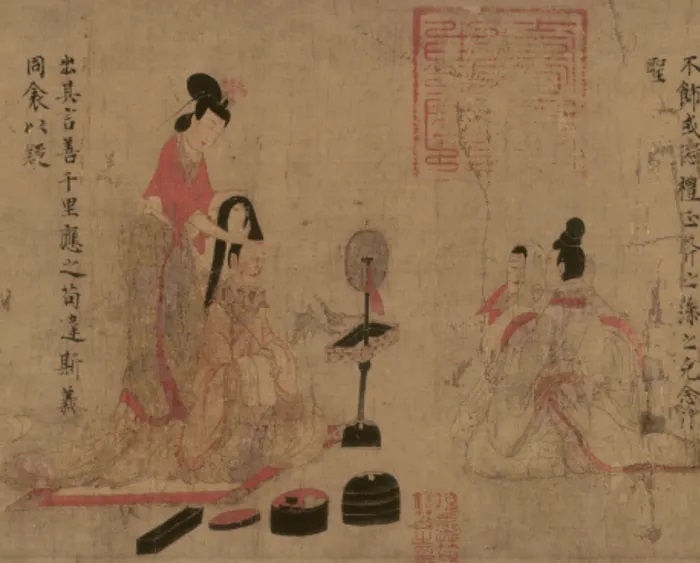 不飾或愆禮正斧之藻之克念作
聖
出其言善千里應之苟違斯義
同衾以疑